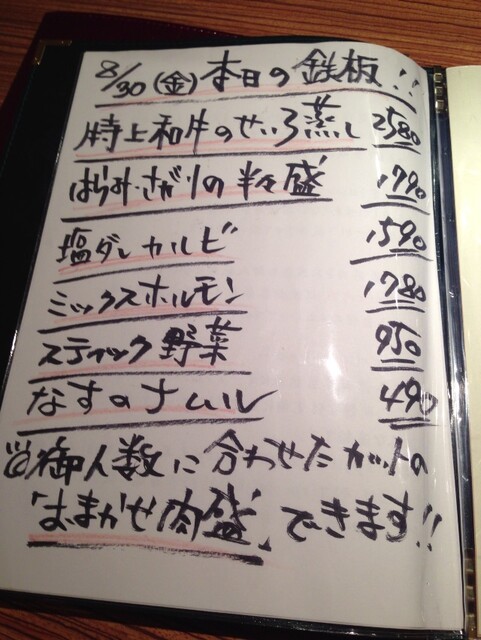 8/30(金)本日の鉄板!!
特上和牛のせいろ蒸し 2580
はらみ・さがりの半々盛 1790
塩ダレカルビ 1590
ミックスホルモン 1780
スティック野菜 950
なすのナムル 490
御人数に合わせたカットの
「おまかせ肉盛」できます!!